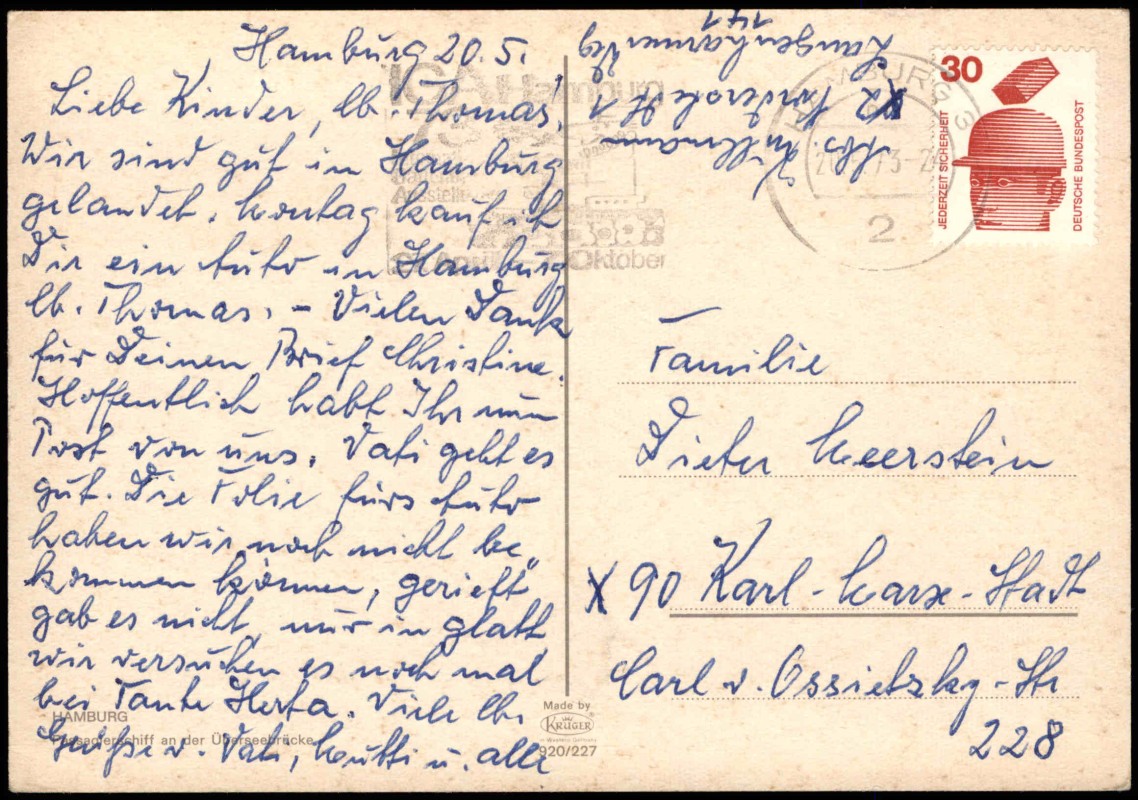 Hamburg 20.5.
Liebe Kinder, lb. Thomas,
Wir sind gut in Hamburg
gelandet. Montag kauf ich
Dir ein Auto in Hamburg
lb. Thomas. – Vielen Dank
für Deinen Brief Christine.
Hoffentlich habt Ihr nun
Post von uns. Vati geht es
gut. Die Folie fürs Auto
haben wir noch nicht be„
kommen können, gerieft
gab es nicht, nur in glatt
wir versuchen es noch mal
bei Tante Herta. Viele lb.
Grüße v. Vati, Mutti u. alle
HAMBURG
Passagierschiff an der Überseebrücke
Made by
KRÜGER
Western Germany
920/227
IGA Hamburg
Ausstellung
April – Oktober
Abs. Killmann
X2 Norderstedt 1
Langenharmer Weg
171
HAMBURG
2
30
JEDERZEIT SICHERHEIT
DEUTSCHE BUNDESPOST
Familie
Dieter Meerstein
X 90 Karl-Marx-Stadt
Carl v. Ossietzky-Str
228